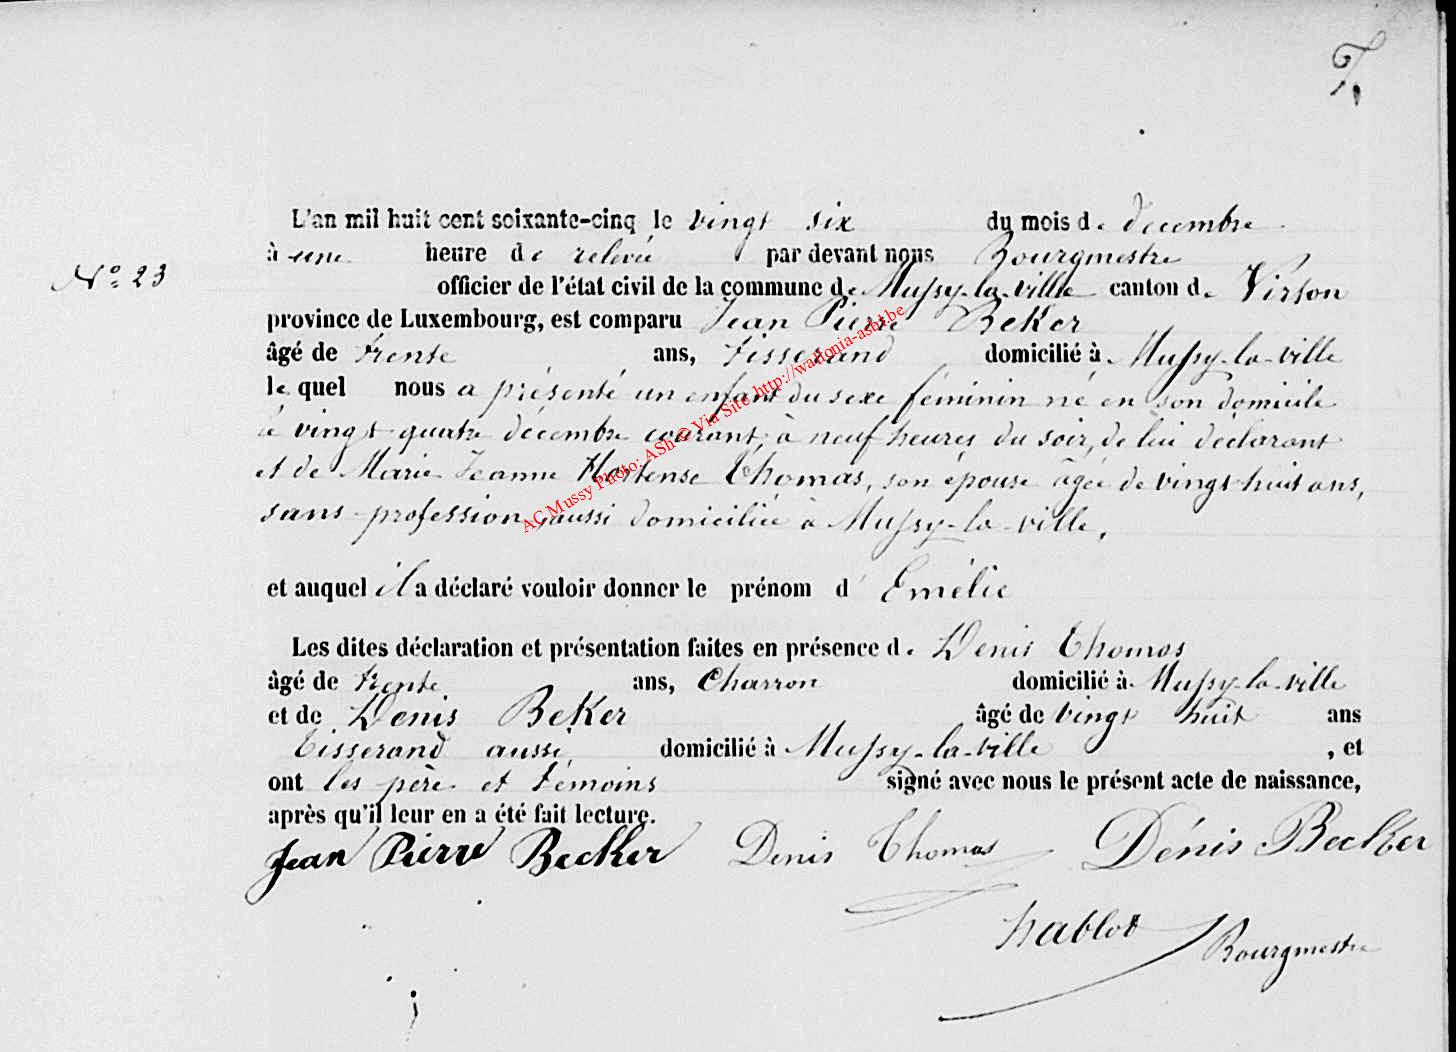 L'an mil huit cent soixante-cinq le vingt six du mois de decembre
à une heure de relevée par devant nous Bourgmestre
N.° 23
officier de l'état civil de la commune de Mussy-la-ville canton de Virton
province de Luxembourg, est comparu Jean Pierre Beker
âgé de trente ans, tisserand domicilié à Mussy-la-ville
lequel nous a présenté un enfant du sexe féminin né en son domicile
le vingt-quatre décembre courant, à neuf heures du soir, de lui déclarant
et de Marie Jeanne Hortense Thomas, son épouse âgée de vingt-huit ans,
sans profession, aussi domiciliée à Mussy-la-ville,
et auquel il a déclaré vouloir donner le prénom d' Emélie
Les dites déclaration et présentation faites en présence de Denis Thomas
âgé de trente ans, Charron domicilié à Mussy-la-ville
et de Denis Beker âgé de vingt huit ans
Tisserand aussi domicilié à Mussy-la-ville , et
ont les père et témoins signé avec nous le présent acte de naissance,
après qu'il leur en a été fait lecture.
Jean Pierre Becker Denis Thomas Dénis Becker
hablot Bourgmestre
AC Mussy Photo: ASh © Via Site http://wallonia-asbl.be